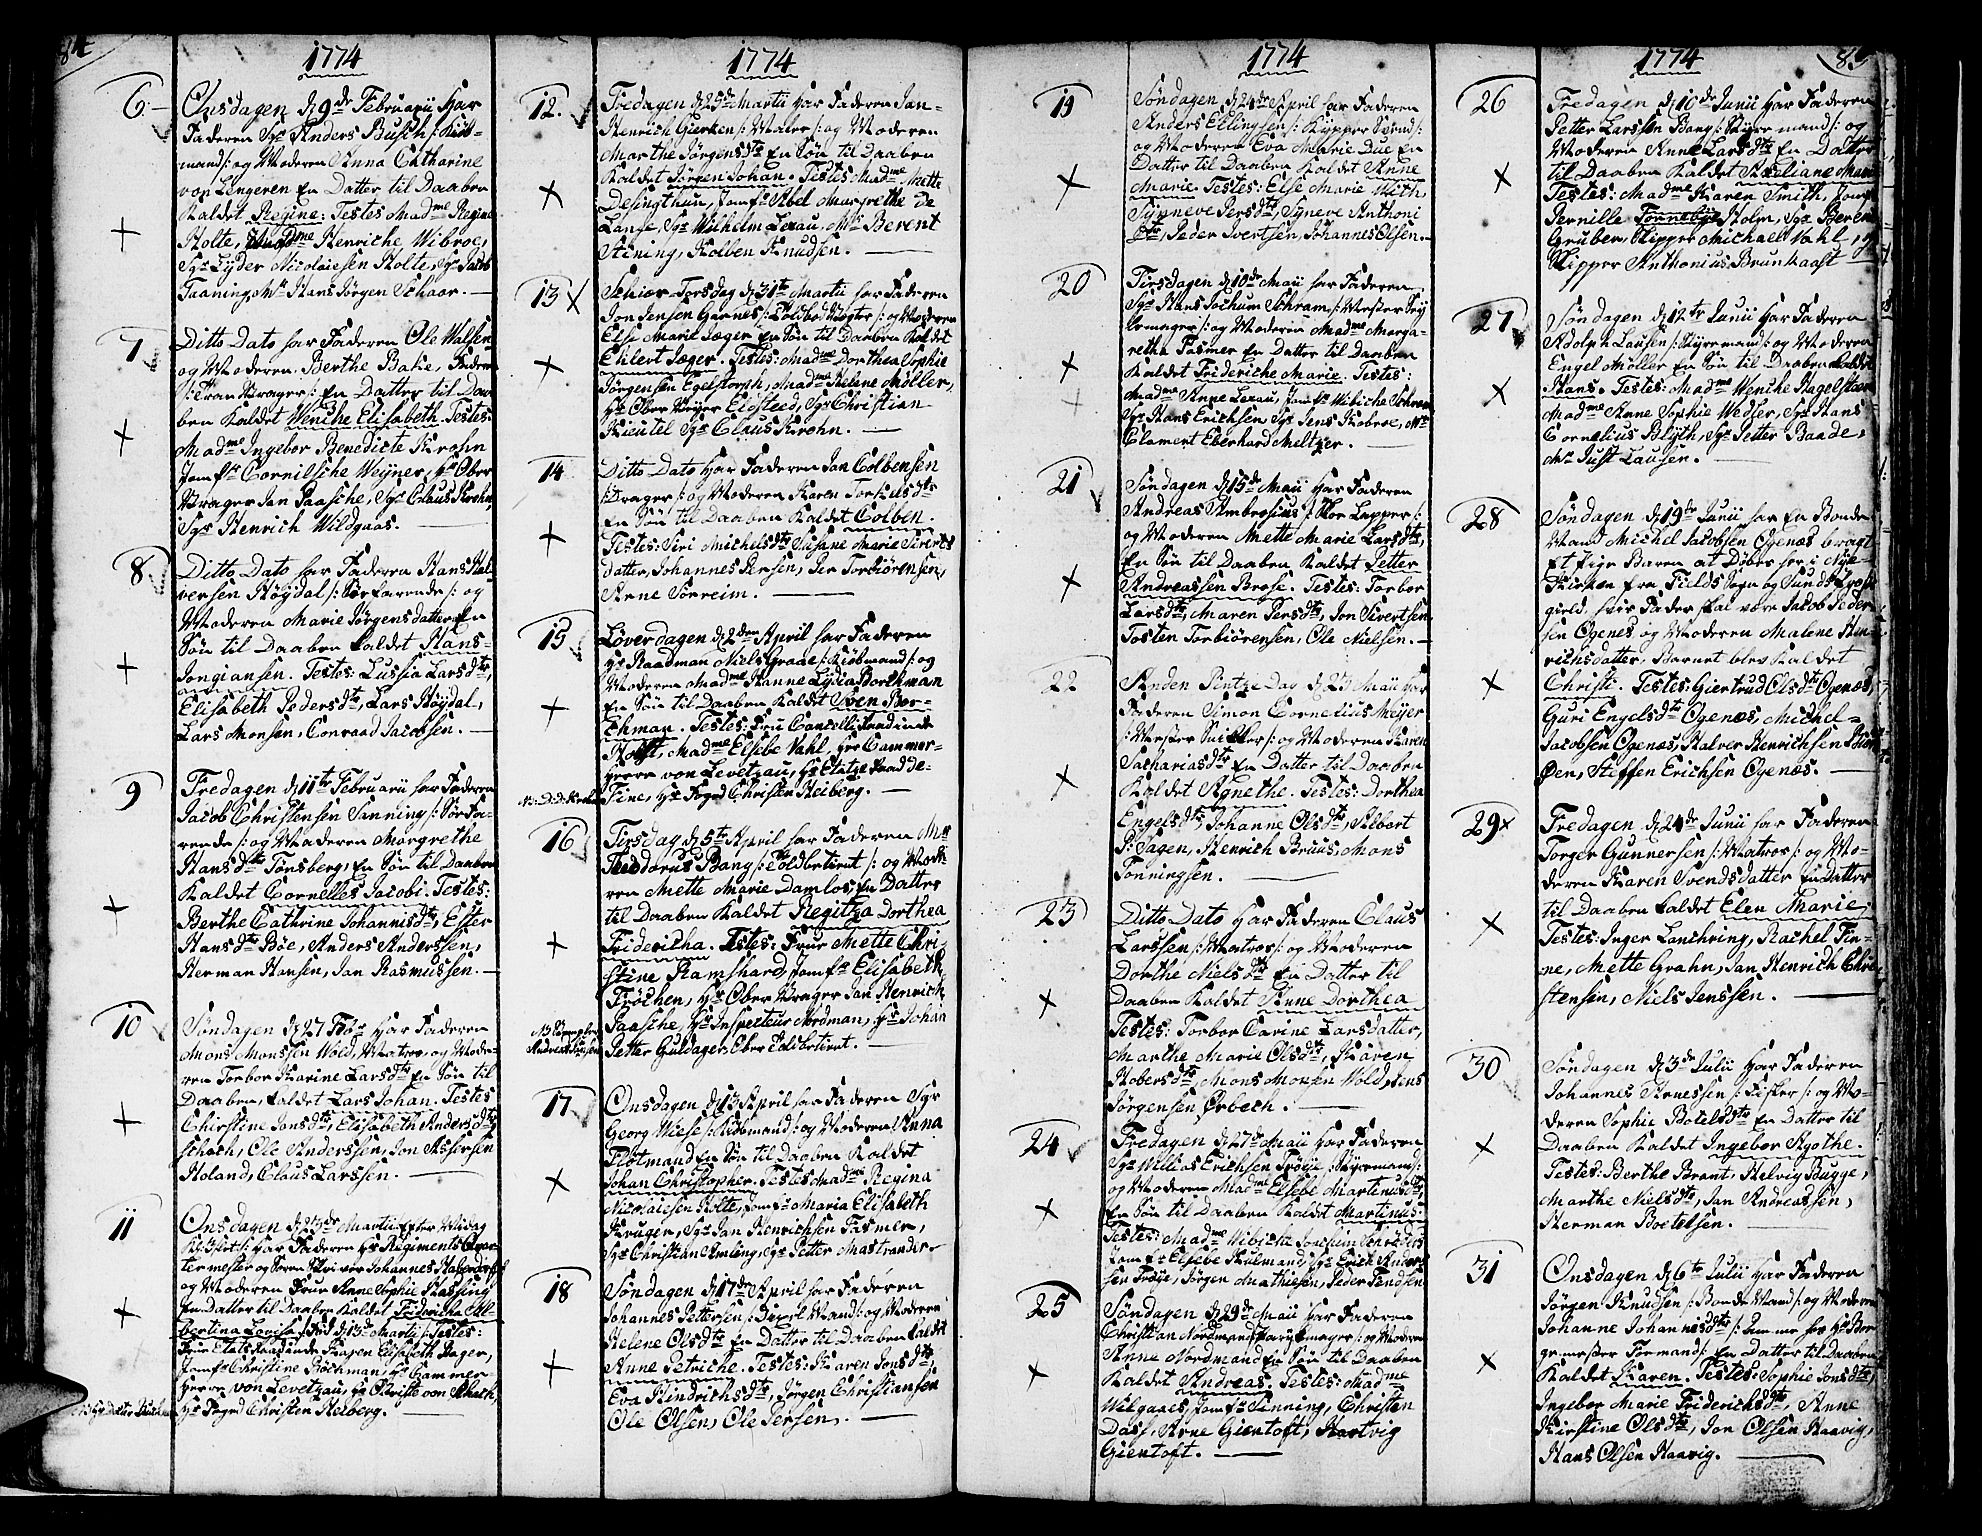 84
1774
6.
Onsdagen d 9de Februarii har
Faderen Sr Anders Busch /: Kiöb-
mand :/ og Moderen Anna Catharine
von Lengeren En Datter til Daaben
Kaldet Regine: Testes Madme Regine
Holte, Madme Henriche Wibroe,
Sgr Lyder Nicolaiesen Holte, Sgr Jacob
Taaning, Mr Hans Jörgen Schaar.
7
Ditto Dato har Faderen Ole Walsen
og Moderen Berthe Batie,
/: Kran Drager :/ En Datter til Daa-
ben Kaldet Wenche Elisabeth Testes:
Madme Ingebor Benedicte Krohn
Jomfr Cornilsche Weyner, Hr Ober
Drager Jan Paasche, Sgr Claus Krohn
Sgr Henrich Wildgaas.
8
Ditto Dato har Faderen Hans Hal-
versen Höydal /: Söefarende :/ og
Moderen Marie Jörgensdatter En
Sön til Daaben kaldet Hans
Jongiansen. Testes: Lussia Larsdtr,
Elisabeth Pedersdtr, Lars Höydal,
Lars Monsen, Conraad Jacobsen.
9
Fredagen d 11te Februarii har Faderen
Jacob Christensen Tanning /: Söefa-
rende :/ og Moderen Margrethe
Hansdtr Tönsberg, En Sön til Daaben
Kaldet Cornelles Jacobi. Testes:
Berthe Cathrine Johannisdtr, Esser
Hansdtr Böe, Anders Anderssen,
Herman Hansen, Jan Rasmussen.
10
Söndagen d 27 Febr har Faderen
Mons Monssen Wold, Matros, og Mode-
ren Torbor Karine Larsdtr En Sön til
Daaben, kaldet Lars Johan. Testes
Chirstine Jonsdtr, Elisabeth Andersdtr
Schoch, Ole Anderssen, Jon Assersen
Holand, Claus Larssen.
11
Onsdagen d 23de Martii Efter Midag
Kl 3 slet :/ har Faderen Hr Regiments Qvar-
termester og Soren Skriver Johannes
og Moderen Frue Anne Sophie Hassing
En Datter til Daaben kaldet Fridericha Al-
bertina Lovisa /: Föd d 13de Martii :/ Testes:
Frue Etats Raadinde Karen Elisabeth Hager,
Jomfr Christine Bochman, Hr Cammer-
Herre von Levetzau, Hr Obriste von
Hr Foged Christen Heiberg.
1774
12.
Fredagen d 25de Martii har Faderen Jan-
Henrich Gierken /: Maler :/ og Moderen
Marthe Jörgensdtr En Sön til Daaben
Kaldet Jörgen Johan. Testes Madme Mette
Desingthun, Jomfr Abel Margrethe de
Lange, Sgr Wilhelm Lexau, Mr Berent
Stining, Kolben Knudsen.
13
Schiær-Torsdag d 31te Martii har Faderen
Jon Jensen Garnes /: Toldbod Wagter :/ og Moderen
Else Marie Jæger En Sön til Daaben Kaldet
Ehlert Jæger. Testes: Madme Dorthea Sophie
Jörgensen Egelstorph, Madme Helene Möller,
Hr Ober Weyer Eidsteed, Sgr Christian
Kieutel Sgr Claus Krohn.
14
Ditto Dato har Faderen Jan Colbensen
/: Drager :/ og Moderen Karen Torkelsdtr
En Sön til Daaben Kaldet Colben.
Testes: Siri Michelsdtr, Susane Marie Siverts
datter, Johannes Persen, Per Torbiörensen,
Arne Sorreim.
15
Löverdagen d 2den April har Faderen
Hr Raadman Niels Graae /: Kiöbmand :/ og
Moderen Madme Hanne Lydia Borthman
En Sön til Daaben Kaldet Sven Bor-
thman. Testes: Fru Cancellieraadinde
Holst, Madme Elsebe Vahl, Her Cammer-
Herre von Levetzau, Hr Etatzraad de-
Fine, Hr Foged Christen Heiberg.
16
Tirsdag d 5te April har Faderen Mr
Theodorus Bang /: Toldbetient :/ og Mode-
ren Mette Marie Damlos En Datter
til Daaben Kaldet Regitza Dorthea
Fridericha. Testes: Frue Mette Chri-
stine Ramshard, Jomfr Elisabeth
Fröchen, Hr Ober Drager Jan Henrich
Paasche, Hr Inspecteur Nordman, Hr Johan
Petter Guldager, Eber Toldbetient.
17
Onsdagen d 13 April har Faderen Sgr
Georg Wiese /: Kiöbmand :/ og Moderen Anna
Flötmand En Sön til Daaben Kaldet
Johan Christopher. Testes Madme Regina
Nicolaiesen Holte, Jomfr Maria Elisabeth
Kruger, Sgr Jan Henrichsen Fasmer,
Sgr Christian Amling, Sgr Petter Mastrander.
18
Söndagen d 17de April har Faderen
Johannes Pettersen /: :/ og Moderen
Helene Olsdtr En Datter til Daaben Kaldet
Anne Petriche. Testes: Karen Jonsdtr,
Eva Hindrichsdtr, Jörgen Christiansen
Ole Olsen, Ole Persen.
1774
19
Söndagen d 24de April har Faderen
Anders Ellingsen /: Kypper Svend :/
og Moderen Eva Marie Due En
Datter til Daaben Kaldet Anne
Marie. Testes: Else Marie With,
Synneve Persdtr, Syneve Anthoni
dtr, Peder Ivertsen, Johannes Olsen.
20
Tirsdagen d 10de Maii har Faderen
Sgr Hans Jochum Schram /: Mester Sey
lemager :/ og Moderen Madme Marga-
retha Fasmer En Datter til Daaben
Kaldet Frideriche Marie. Testes:
Madme Anne Lexau, Jomfr Wibiche Schram
Sgr Hans Erichsen, Sgr Jens Kobroe, Mr
Clament Eberhard Meltzer.
21
Söndagen d 15de Maii har Faderen
Andreas Ambrosius /: Skoe Lapper :/
og Moderen Mette Marie Larsdtr,
En Sön til Daaben Kaldet Petter
Andreassen Brose. Testes: Torbor
Larsdtr, Maren Persdtr, Jon Sivertsen
Tosten Torbiörensen, Ole Nielsen.
22
Anden Pintze Dag d 23 Maii har
Faderen Simon Cornelius Meyer
/: Mester Snikker :/ og Moderen Karen
Sachariasdtr En Datter til Daaben
Kaldet Agnethe. Testes: Dorthea
Engelsdtr, Johanne Olsdtr, Albert
P: Sagen, Henrich Bruus, Mons
Tonningsen.
23
Ditto Dato har Faderen Claus
Larssen /: Matros :/ og Moderen
Dorthe Nielsdtr En Datter til
Daaben Kaldet Anne Dorthea
Testes: Torbor Carine Larsdatter,
Marthe Marie Olsdtr, Karen
Hobersdtr, Mons Monsen Wold, Jens
Jörgensen Örbech.
24
Fredagen d 27de Maii har Faderen
Sgr Willias Erichsen Fröye /: Styrmand :/
og Moderen Madme Elsebe Martinusdtr,
En Sön til Daaben Kaldet Martinus:
Testes: Madme Wibiche Joachim Schröders
Jomfr Elsebe Skulmand, Sgr Erick Anders
sen Fröye, Jörgen Mathiesen, Peder Tendsen
25
Söndagen d 29de Maii har Faderen
Christian Nordmand /: Parykmager :/ og Moderen
Anne Nordmand En Sön til Daaben
Kaldet Andreas. Testes: Madme
Wilgaaes, Jomfr Tinning, Christen
Dass, Arne Gientoft, Hartvig
Gientoft.
1774
85
26
Fredagen d 10de Junii har Faderen
Petter Larssen Bang /: Styrmand :/ og
Moderen Anne Larsdtr En Datter
til Daaben Kaldet Axeliane Marie
Testes: Madme Karen Smith, Jomfr
Pernille Tonneböe Holm, Sgr Beren
Gruber, Skipper Michael Vahl,
Skipper Anthonius Brunkaast
27
Söndagen d 12te Junii har Faderen
Adolph Lausen /: Styrmand :/ og Moderen
Engel Möller En Sön til Daaben Kaldet
Hans. Testes: Madme Wenche Hagelsteen
Madme Anne Sophie Wedser, Sgr Hans
Cornelius Blyth, Sgr Petter Baade,
Mr Just Lausen.
28
Söndagen d 19te Junii har En Bonde
Mand Michel Jacobsen Ögenæs bragt
Et Pige Baren at Döbes her i Nye-
Kirken fra Fields Sogn og Sunds
gield. hvis Fader skal være Jacob Peder
sen Ögenes og Moderen Malene Hen-
richsdatter, Barnet blev Kaldet
Christi. Testes: Giertrud Olsdtr Ögenæs,
Guri Engelsdtr Ögenæs, Michel
Jacobsen Ögenæs, Halver Henrichsen
Öen, Steffen Erichsen Ögenæs.
29
Fredagen d 24de Junii har Faderen
Torger Gunnersen /: Matros :/ og Mo-
deren Karen Svendsdatter En Datter
til Daaben kaldet Elen Marie,
Testes: Inger Lanchring, Rachel Fin-
ne, Mette Grahn, Jan Henrich Chri-
stensen, Niels Jenssen.
30
Söndagen d 3de Julii har Faderen
Johannes Arnessen /: Fisker :/ og Mo-
deren Sophie Botelsdtr En Datter til
Daaben Kaldet Ingebor Agothe.
Testes: Berthe Brant, Helvig Bugge,
Marthe Nielsdtr, Jan Andreassen,
Herman Boetelsen.
31
Onsdagen d 6te Julii har Faderen
Jörgen Knudsen /: Bonde Mand :/ og Moderen
Johanne Johannisdtr /: hos Hr Bor-
gemester Formand :/ En Datter til Daaben
Kaldet Karen. Testes: Sophie Jonsdtr,
Ingebor Marie Friderichsdtr, Anne
Kirstine Olsdtr, Jon Olsen Haavig,
Hans Olsen Haavig.